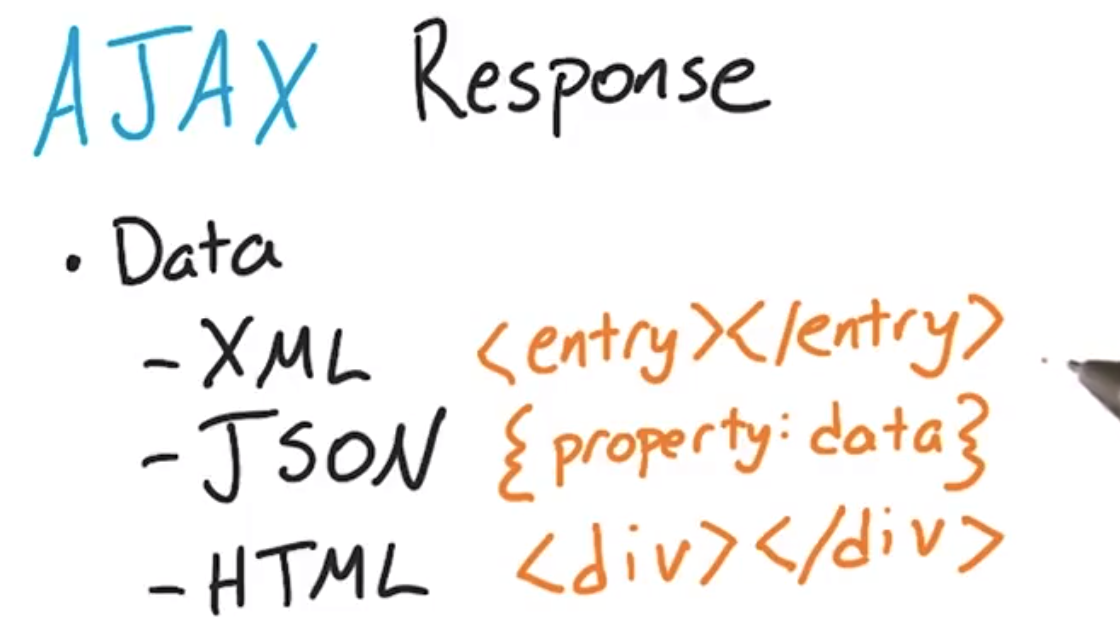 AJAX Response
• Data
- XML <entry></entry>
- JSON {property: data}
- HTML <div></div>